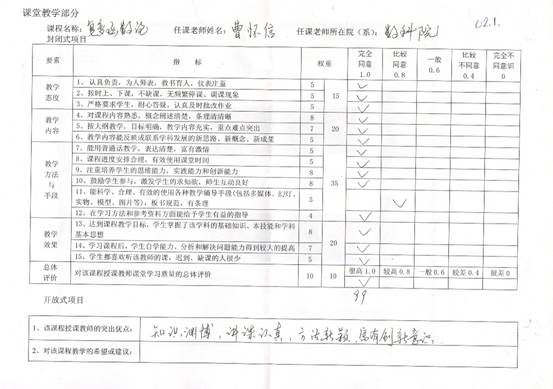 课堂教学部分
02.1.
课程名称：复变函数论 任课老师姓名：曹怀信 任课老师所在院（系）：数科院
封闭式项目
要素 指标 权重 完全同意 1.0 比较同意 0.8 一般 0.6 比较不同意 0.4 完全不同意识 0
教学态度 1、认真负责，为人师表，教书育人，仪表庄重 5 15 ✓
2、按时上、下课，不缺课，无频繁停课、调课现象 5 ✓
3、严格要求学生，耐心答疑，认真及时批改作业 5 ✓
教学内容 4、对课程内容熟悉，概念阐述清楚，条理清清晰 8 20 ✓
5、按大纲教学，目标明确，教学内容充实，重点难点突出 7 ✓
6、教学内容能反映或联系学科发展的新思路、新概念、新成果 5 ✓
教学方法与手段 7、能用普通话教学，表达清楚，富有激情 5 35 ✓
8、课程进度安排合理，有效使用课堂时间 5 ✓
9、注重培养学生的思维能力，实践能力和创新能力 8 ✓
10、鼓励学生参与，激发学生的求知欲，师生互动良好 8 ✓
11、能科学、合理、有效的使用各种教学辅导手段(包括多媒体、幻灯、
实物、模型、图片等)，板书规范，有条理 5 ✓
12、在学习方法和参考资料方面能给予学生有益的指导 4 ✓
教学效果 13、达到课程教学目标，学生掌握了该学科的基础知识、本技能和学科
基本思想 8 20 ✓
14、学习课程后，学生自学能力、分析和解决问题能力得到较大的提高 7 ✓
15、学生都喜欢听该教师的课，迟到、缺课的人很少 5 ✓
总体评价 对该课程授课教师课堂学习质量的总体评价 10 10 很高 1.0 较高 0.8 一般 0.6 较差 0.4 很差 0
✓
开放式项目 99
1、该课程授课教师的突出优点： 知识渊博，讲课认真，方法新颖，富有创新意识。
2、对该课程教学的希望或建议：